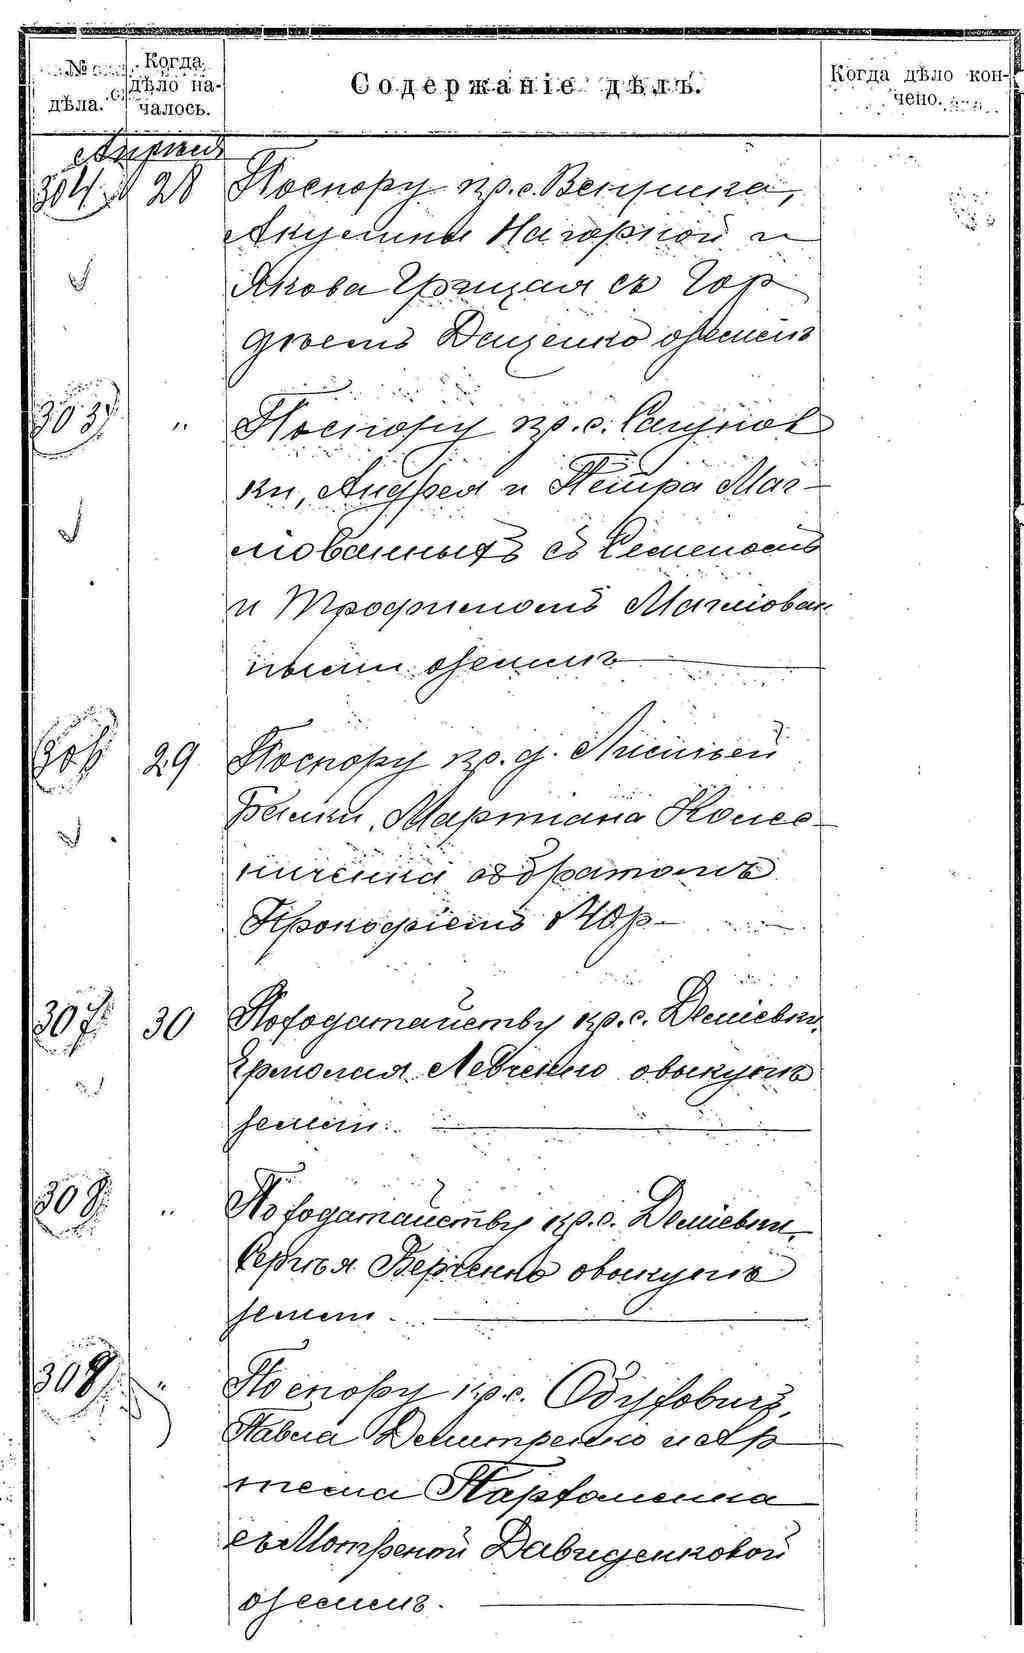 № дѣла.
Когда дѣло началось.
Содержаніе дѣлъ.
Когда дѣло кончено.
Апрѣля
304 28 По спору кр. с. Венрика,
Акулины Нагорной и
Якова Грицая съ Гор
дѣемъ Дещенко о землѣ
303 " По спору кр. с. Сагунов
ки, Андрея и Петра Маг-
лованныхъ съ Семеномъ
и Трофимомъ Магліован
ными о землѣ
306 29 По спору кр. д. Лисичьей
Балки, Мартіана Колес-
ниченка съ братомъ
Прокофіемъ
307 30 По ходатайству кр. с. Деміевки,
Ермолая Левченко о выкупѣ
земли.
308 " По ходатайству кр. с. Деміевки,
Сергѣя Верченко о выкупѣ
земли.
309 " По спору кр. с.
Павла Демитренко и Ар
тема Пархоменка
съ Мотреной Давиденковой
о землѣ.